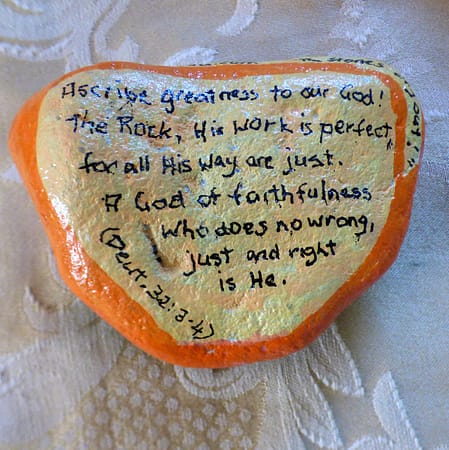 Ascribe greatness to our God!
The Rock, His work is perfect
for all His way are just.
A God of faithfulness
who does no wrong,
just and right
is He.
(Deut. 32:3-4)
stones